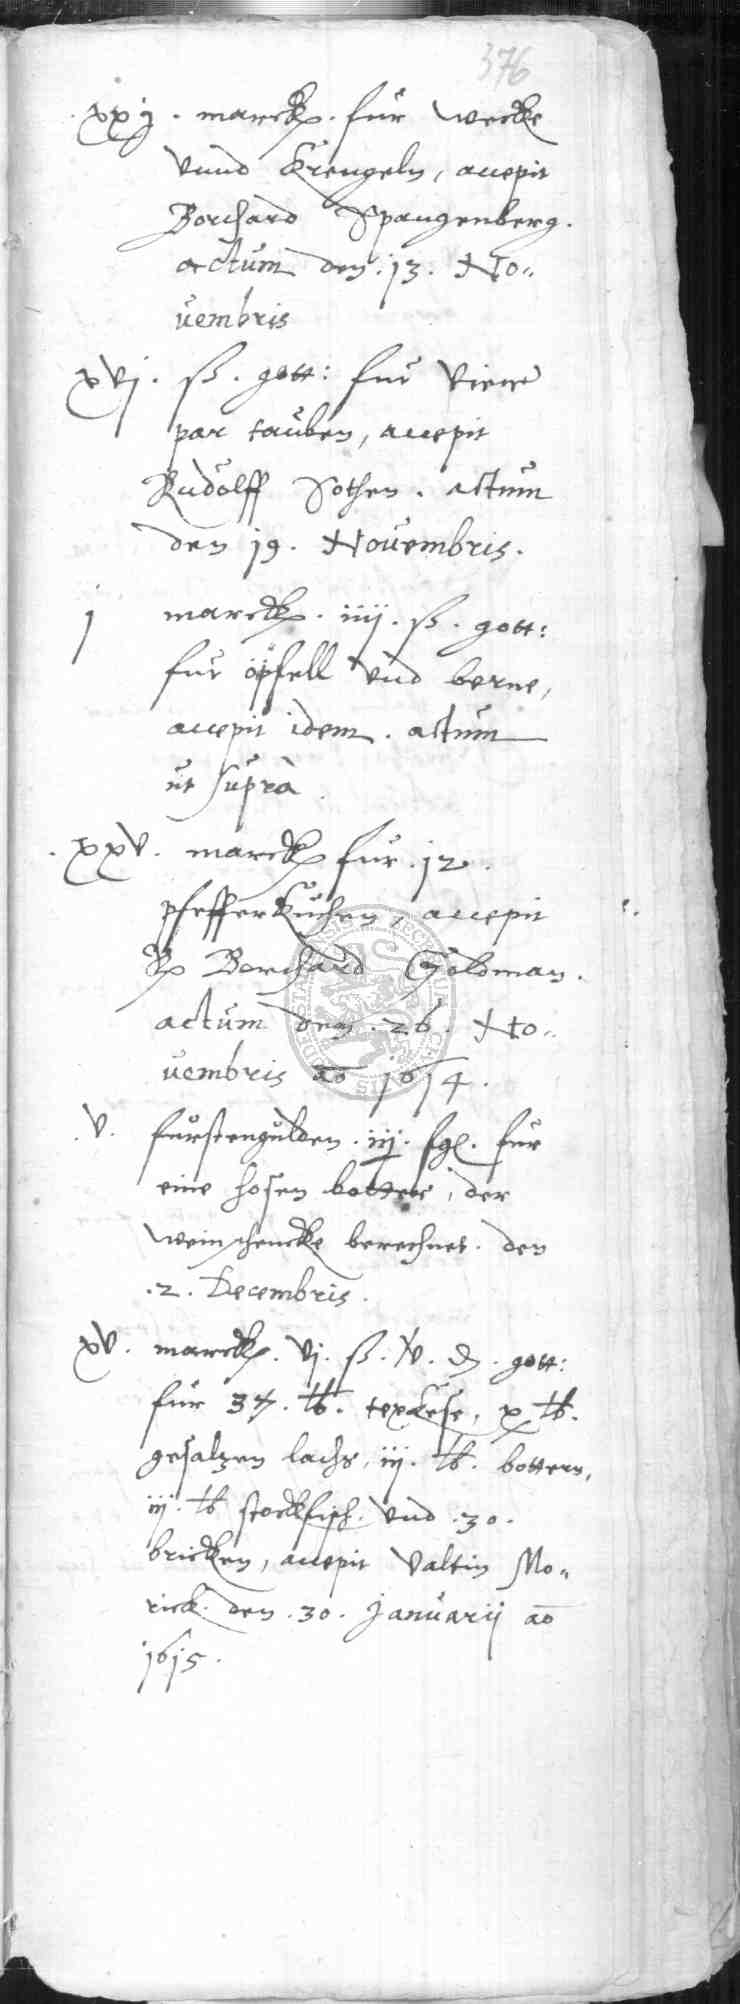 376
xxj . marck . fur wecke
vnnd Krengeln, accepit
Borchard Spangenberg.
actum den . 13 . No-
uembris
xvj . ß . gott: fur viere
par tauben, accepit
Rudolff Sothen . actum
den 19 . Nouembris .
j marck . iiij . ß . gott:
fur öpfell vnd berne,
accepit idem . actum
ut supra
. xxv . marck fur . 12 .
pfefferKuchen, accepit
Borchard Goldman .
actum den . 26 . No-
uembris ao 1614 .
. v . furstengulden . iij . sgl . fur
eine hosen botter, der
weinschencke berechnet . den
. 2 . Decembris .
xv . marck . vj . ß . v . d . gott:
fur 37 . lb . texKese, x lb .
gesaltzen lachs, iij . lb . bottern,
iij . lb stockfisch . vnd . 30 .
bricken, accepit Valtin Mo-
rick . den . 30 . Januarij ao
1615 .